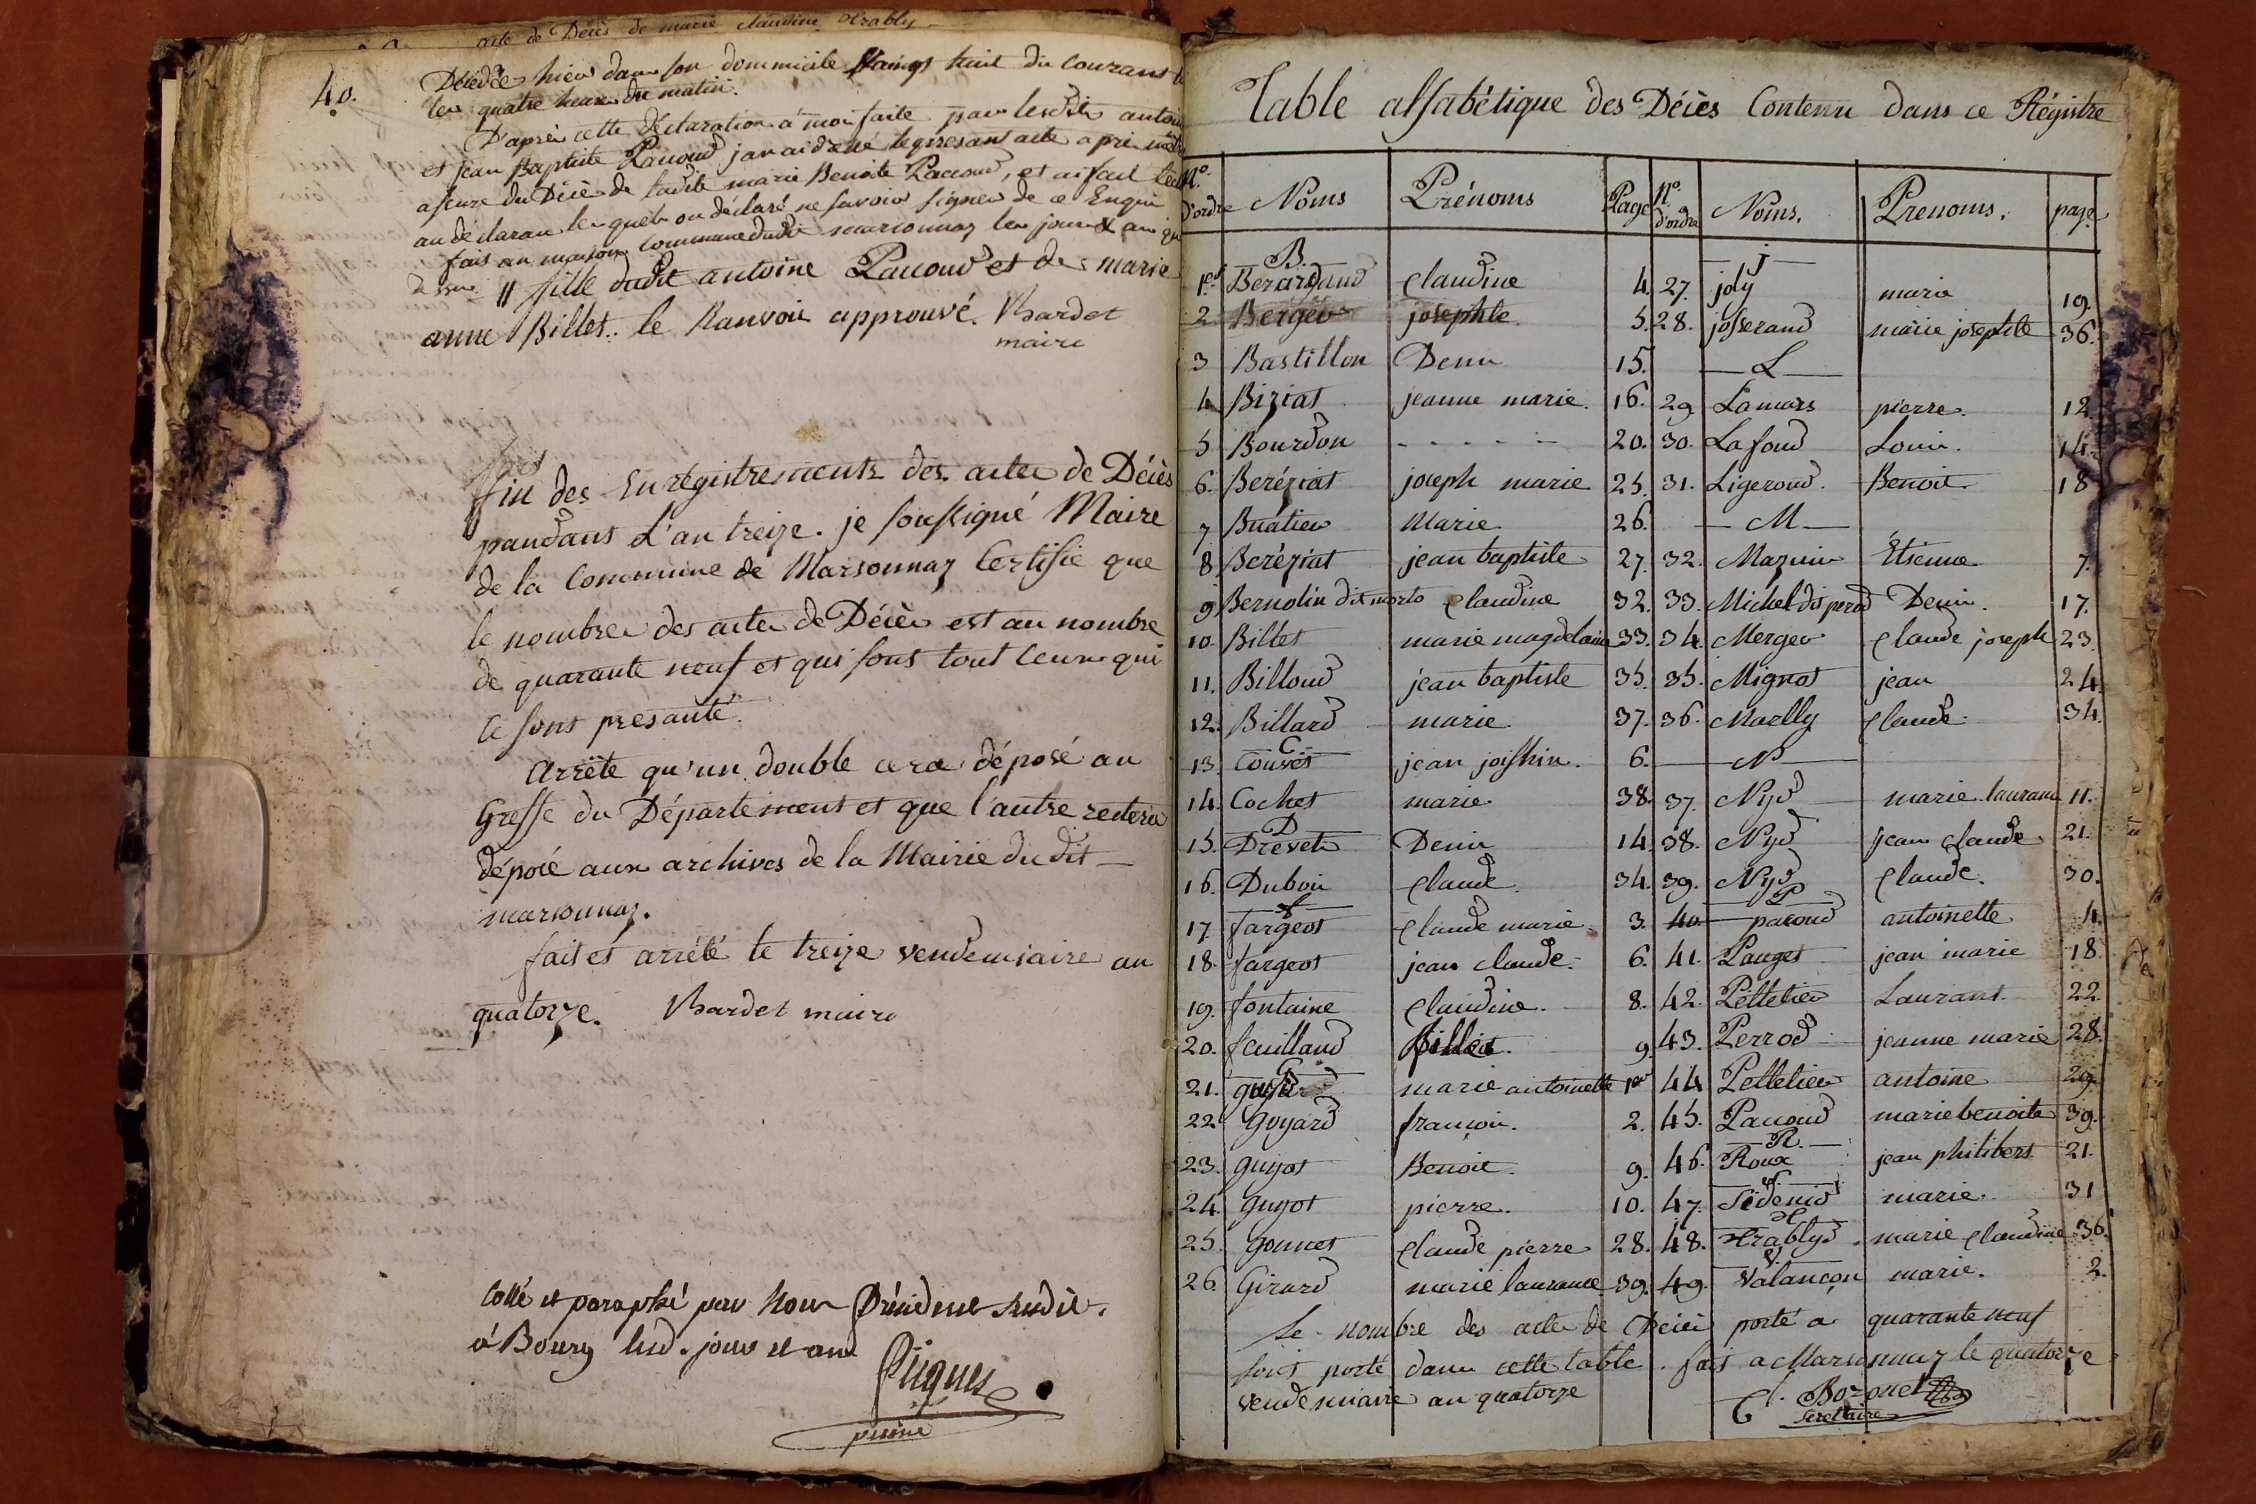 acte de Décès de marie claudine Trably
40.
Décédée hier dans son dommicile vaingt huit du courant
les quatre heure du matin.
D'après cette déclaration a moi faite par lesdits antoine
et jean Baptiste Pacoud j'an ai dressé le presant acte apré
asuré du Décès de ladite marie Benoite Pacoud, et ai fait
au déclaran lesquels on déclaré ne savoir signer de ce Enquis
fait an maison Commune dudit marsonnaz les jour & an que
dessus // fille dudit antoine Pacoud et de marie
anne Billet. le Ranvoie approuvé. Chardet
maire
fin des Enregistrements des actes de Décès
pandant L'an treize. je soussigné Maire
de la Commune de Marsonnaz Certifie que
le nombre des actes de Décès est au nombre
de quarante neuf et qui sont tout ceux qui
ce sont presanté.
Arrête qu'un double cera déposé au
Greffe du Département et que l'autre restera
déposé aux archives de la Mairie du dit
marsonnaz.
fait et arrêté le treize vendemiaire an
quatorze. Chardet maire
Collé et paraphé par Nous Président susdit.
à Bourg lesd. jour et an
Table alfabétique des Décès Contenu dans ce Régistre
N.o d'ordre Noms Prénoms Page N.o d'ordre Noms. Prenoms. page
B. J
1.er Berardand Claudine 4. 27. joly marie 19.
2 Berger josephte 5. 28. josserand marie josephte 36.
3 Bastillon Denis 15. L
4 Biziat jeanne marie. 16. 29 Lamars pierre. 12
5 Bourdon - - - - - 20. 30. Lafond Louis. 14.
6. Bereziat joseph marie 25. 31. Ligeroud. Benoit. 18
7 Buatier Marie 26. M
8 Bereziat jean baptiste 27. 32. Mazuir Etienne 7.
9 Bernolin dit morto Claudine 32. 33. Michel dit perod Denis. 17.
10. Billet marie magdelaine 33. 34. Merger Claude joseph 23.
11. Billoud jean baptiste 35. 35. Mignot jean 24.
12. Billard marie. 37. 36. Maelly Claude. 34.
C. N
13. Couvet jean joishin. 6.
14. Cochet marie 38. 37. Nyd marie laurance 11.
D
15. Drevet Denis 14. 38. Nyd jean claude 21.
16. Dubois Claude. 34. 39. Nyd Claude. 30.
f P
17. fargeot Claude marie. 3. 40. pacoud antoinette 4.
18. fargeot jean claude. 6. 41. Pauget jean marie 18.
19. fontaine Claudine. 8. 42. Pelletier Laurant. 22.
20. feuilland 9. 43. Perrod jeanne marie 28.
G
21. marie antoinette 1er 44. Pelletier antoine 29.
22. Goyard francois. 2. 45. Pacoud marie benoite 39.
R.
23. guyot Benoit. 9. 46. Roux jean philibert 21.
S.
24. guyot pierre. 10. 47. Sidenid marie. 31
T
25. gonnet Claude pierre 28. 48. Trablyd marie Claudine 36.
V.
26. Girard marie laurance 39. 49. Valançon marie. 2.
Le nombre des actes de Décès porté a quarante neuf
sont porté dans cette table. fait a Marsonnaz le quatorze
vendemiaire an quatorze
Cl. Bozonet
Secrettaire